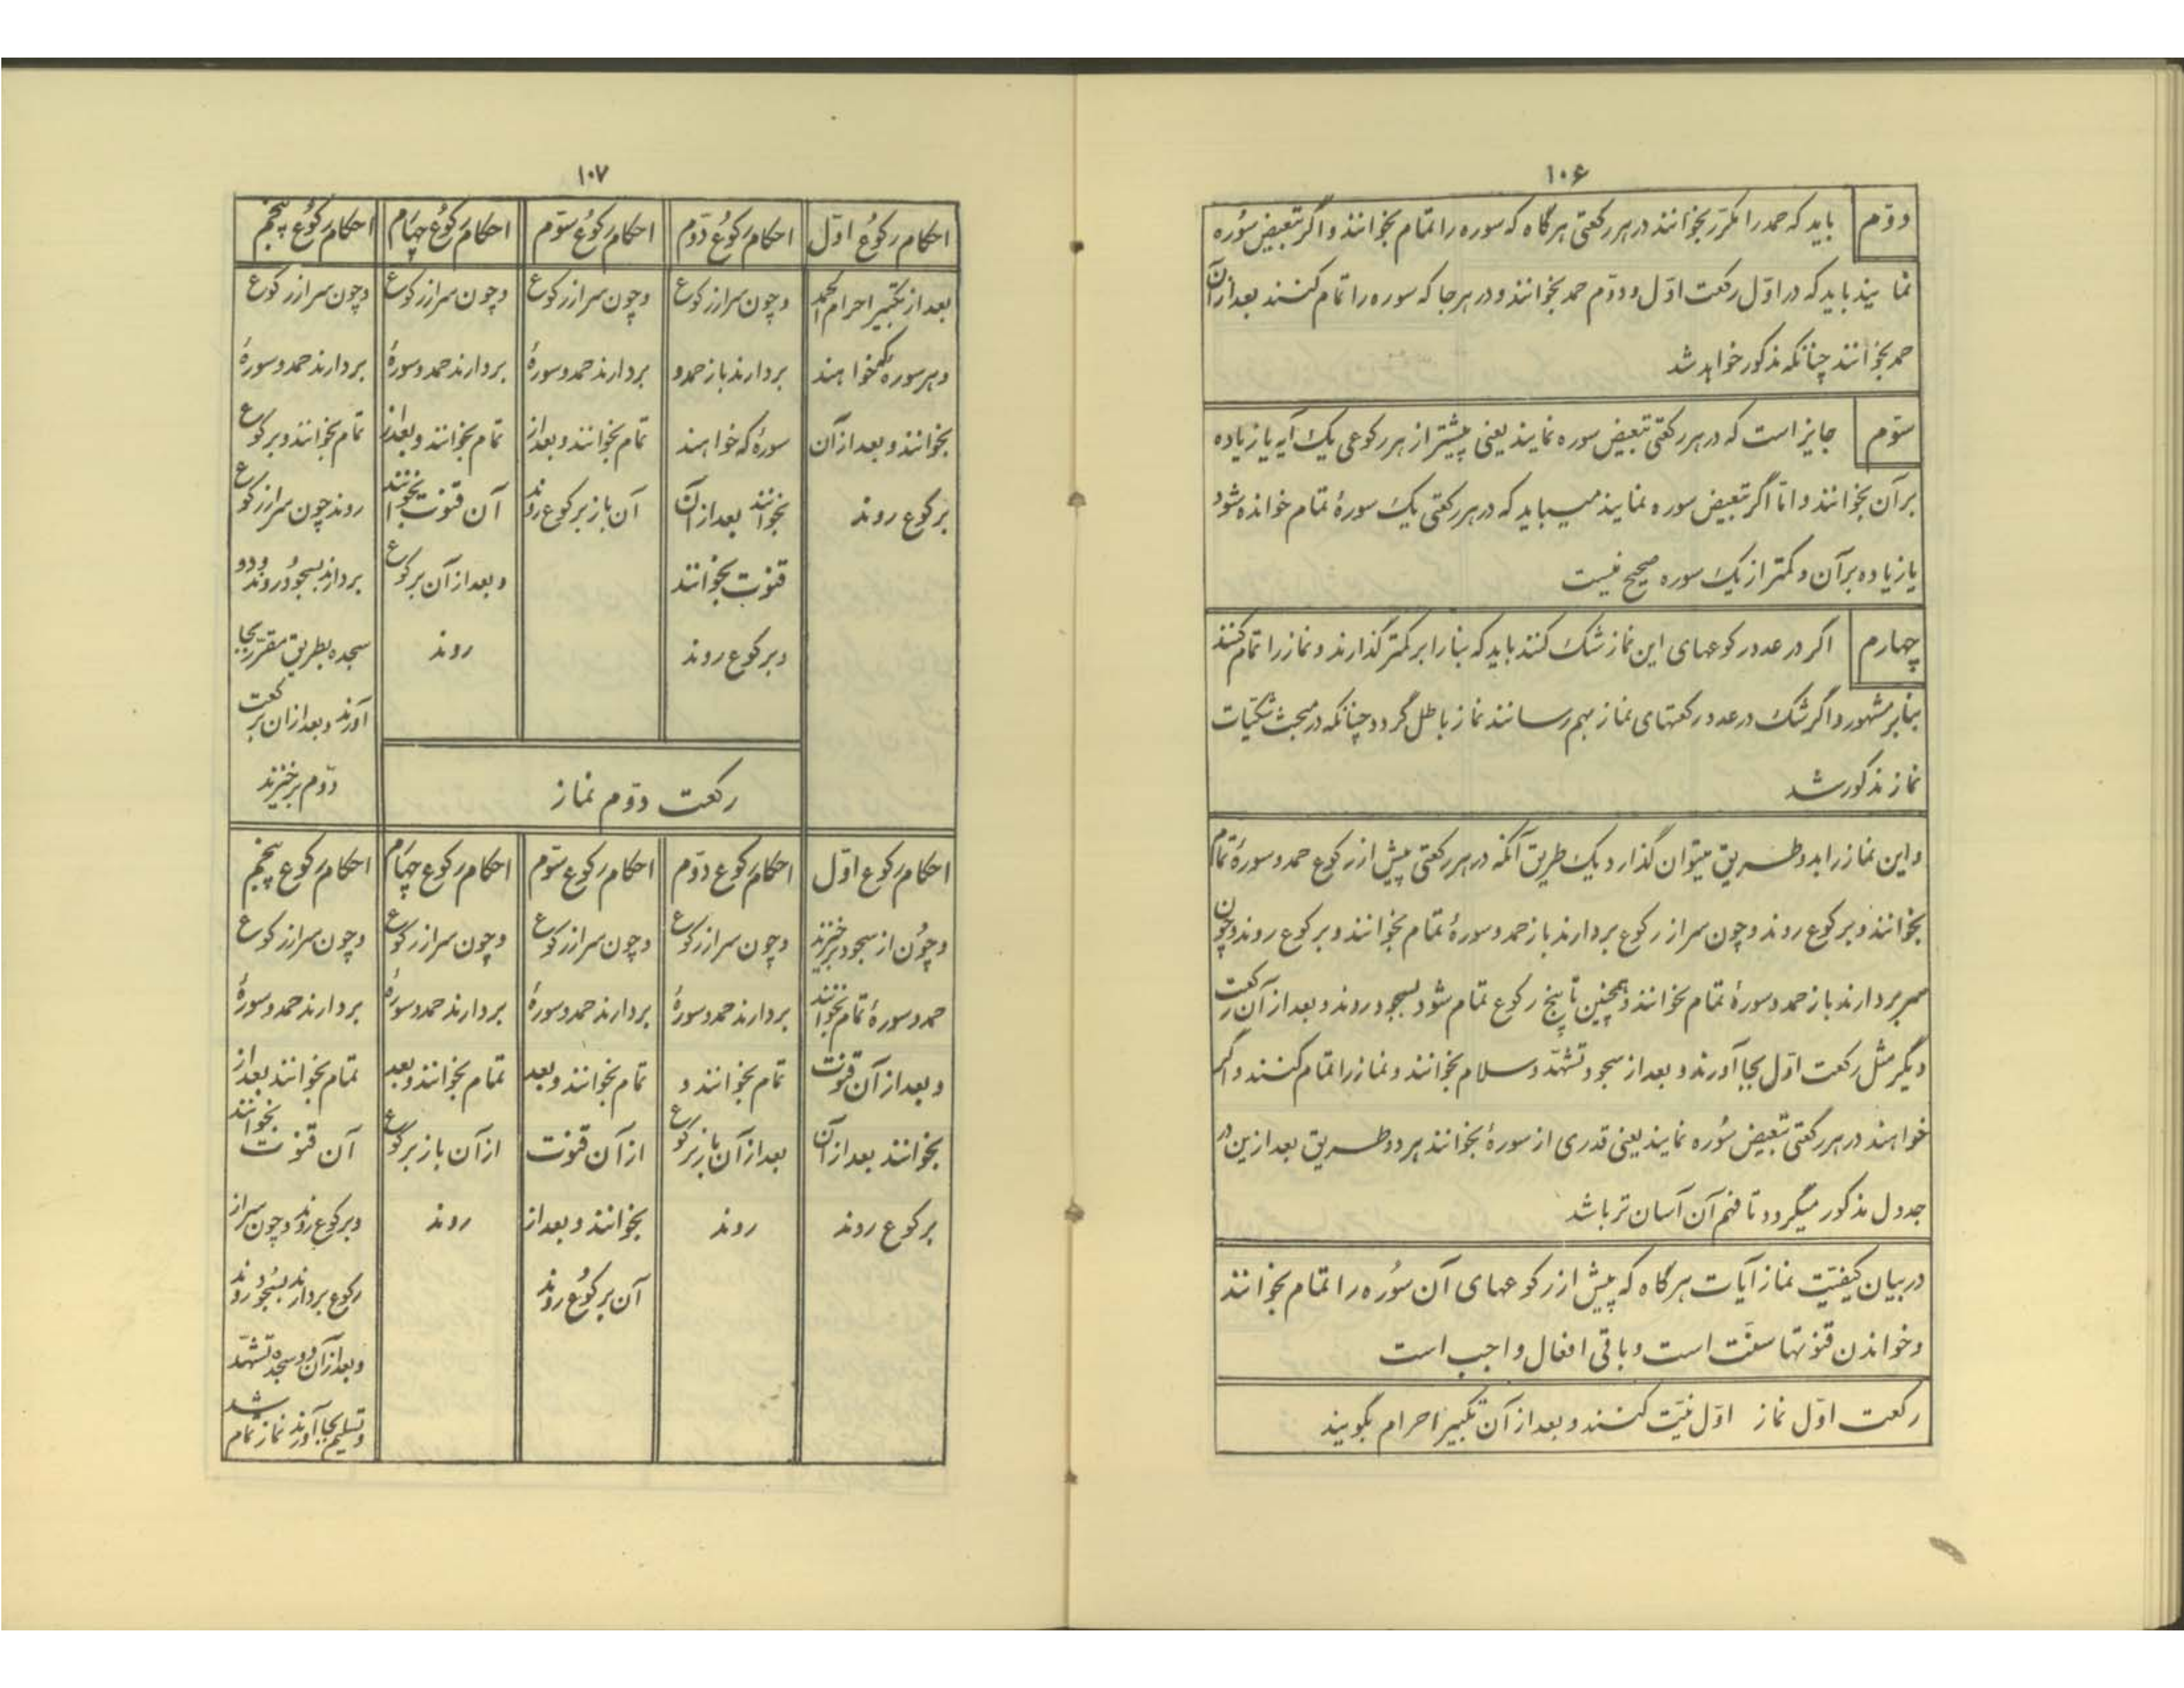 ۱۰۶
دوّم باید که حمد را مکرّر بخوانند در هر رکعتی هرگاه که سوره را تمام بخوانند و اگر تبعیض سُوره
نمایند باید که در اوّل رکعت اوّل و دوّم حمد بخوانند و در هر جا که سوره را تمام کنند بعد از آن
حمد بخوانند چنانکه مذکور خواهد شد
سوّم جایز است که در هر رکعتی تبعیض سوره نمایند یعنی پیشتر از هر رکوعی یک آیه یا زیاده
بر آن بخوانند و امّا اگر تبعیض سوره نمایند میباید که در هر رکعتی یک سورهٔ تمام خوانده شود
یا زیاده بر آن و کمتر از یک سوره صحیح نیست
چهارم اگر در عدد رکوعهای این نماز شک کنند باید که بنا را بر کمتر گذارند و نماز را تمام کنند
بنابر مشهور و اگر شک در عدد رکعتهای نماز بهم رسانند نماز باطل گردد چنانکه در مبحث شکیّات
نماز مذکور شد
و این نماز را بدو طریق میتوان گذارد یک طریق آنکه در هر رکعتی پیش از رکوع حمد و سورهٔ تمام
بخوانند و برکوع روند و چون سر از رکوع بردارند باز حمد و سورهٔ تمام بخوانند و برکوع روند و چون
سر بردارند باز حمد و سورهٔ تمام بخوانند و همچنین تا پنج رکوع تمام شود بسجود روند و بعد از آن رکعت
دیگر مثل رکعت اوّل بجا آورند و بعد از سجود تشهّد و سلام بخوانند و نماز را تمام کنند و اگر
خواهند در هر رکعتی تبعیض سُوره نمایند یعنی قدری از سورهٔ بخوانند هر دو طریق بعد ازین در
جدول مذکور میگردد تا فهم آن آسان تر باشد
در بیان کیفیّت نماز آیات هرگاه که پیش از رکوعهای آن سُوره را تمام بخوانند
و خواندن قنوتها سنّت است و باقی افعال واجب است
رکعت اوّل نماز اوّل نیّت کنند و بعد از آن تکبیر احرام بگویند
۱۰۷
احکام رکوُع اوّل
بعد از تکبیر احرام الحمد
و هر سوره که خواهند
بخوانند و بعد از آن
برکوع روند
احکام رکوُع دوّم
و چون سر از رکوع
بردارند باز حمد و
سورهٔ که خواهند
بخوانند بعد از آن
قنوت بخوانند
و برکوع روند
احکام رکوُع سوّم
و چون سر از رکوع
بردارند حمد و سورهٔ
تمام بخوانند و بعد از
آن باز برکوع روند
احکام رکوُع چهارم
و چون سر از رکوع
بردارند حمد و سورهٔ
تمام بخوانند و بعد از
آن قنوت بخوانند
و بعد از آن برکوع
روند
احکام رکوُع پنجم
و چون سر از رکوع
بردارند حمد و سورهٔ
تمام بخوانند و برکوع
روند چون سر از رکوع
بردارند بسجُود روند و دو
سجده بطریق مقرّر بجا
آورند و بعد از آن برکعت
دوّم برخیزند
رکعت دوّم نماز
احکام رکوع اوّل
و چوُن از سجود برخیزند
حمد و سورهٔ تمام بخوانند
و بعد از آن قنوت
بخوانند بعد از آن
برکوع روند
احکام رکوع دوّم
و چون سر از رکوع
بردارند حمد و سورهٔ
تمام بخوانند و
بعد از آن باز برکوع
روند
احکام رکوع سوّم
و چون سر از رکوع
بردارند حمد و سورهٔ
تمام بخوانند و بعد
از آن قنوت
بخوانند و بعد از
آن برکوُع روند
احکام رکوع چهارم
و چون سر از رکوع
بردارند حمد و سورهٔ
تمام بخوانند و بعد
از آن باز برکوع
روند
احکام رکوع پنجم
و چون سر از رکوع
بردارند حمد و سورهٔ
تمام بخوانند بعد از
آن قنوت بخوانند
و برکوع روند و چون سر از
رکوع بردارند بسُجود روند
و بعد از آن دو سجده تشهّد
و تسلیم بجا آورند نماز تمام شد